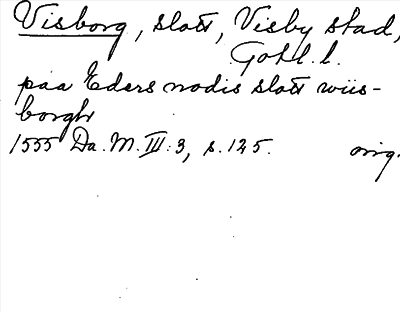 Visborg, slott, Visby stad,
Gotl. l.
paa Eders nodis slott wiis-
borgh
1555 Da. M. III: 3, s. 125. orig.